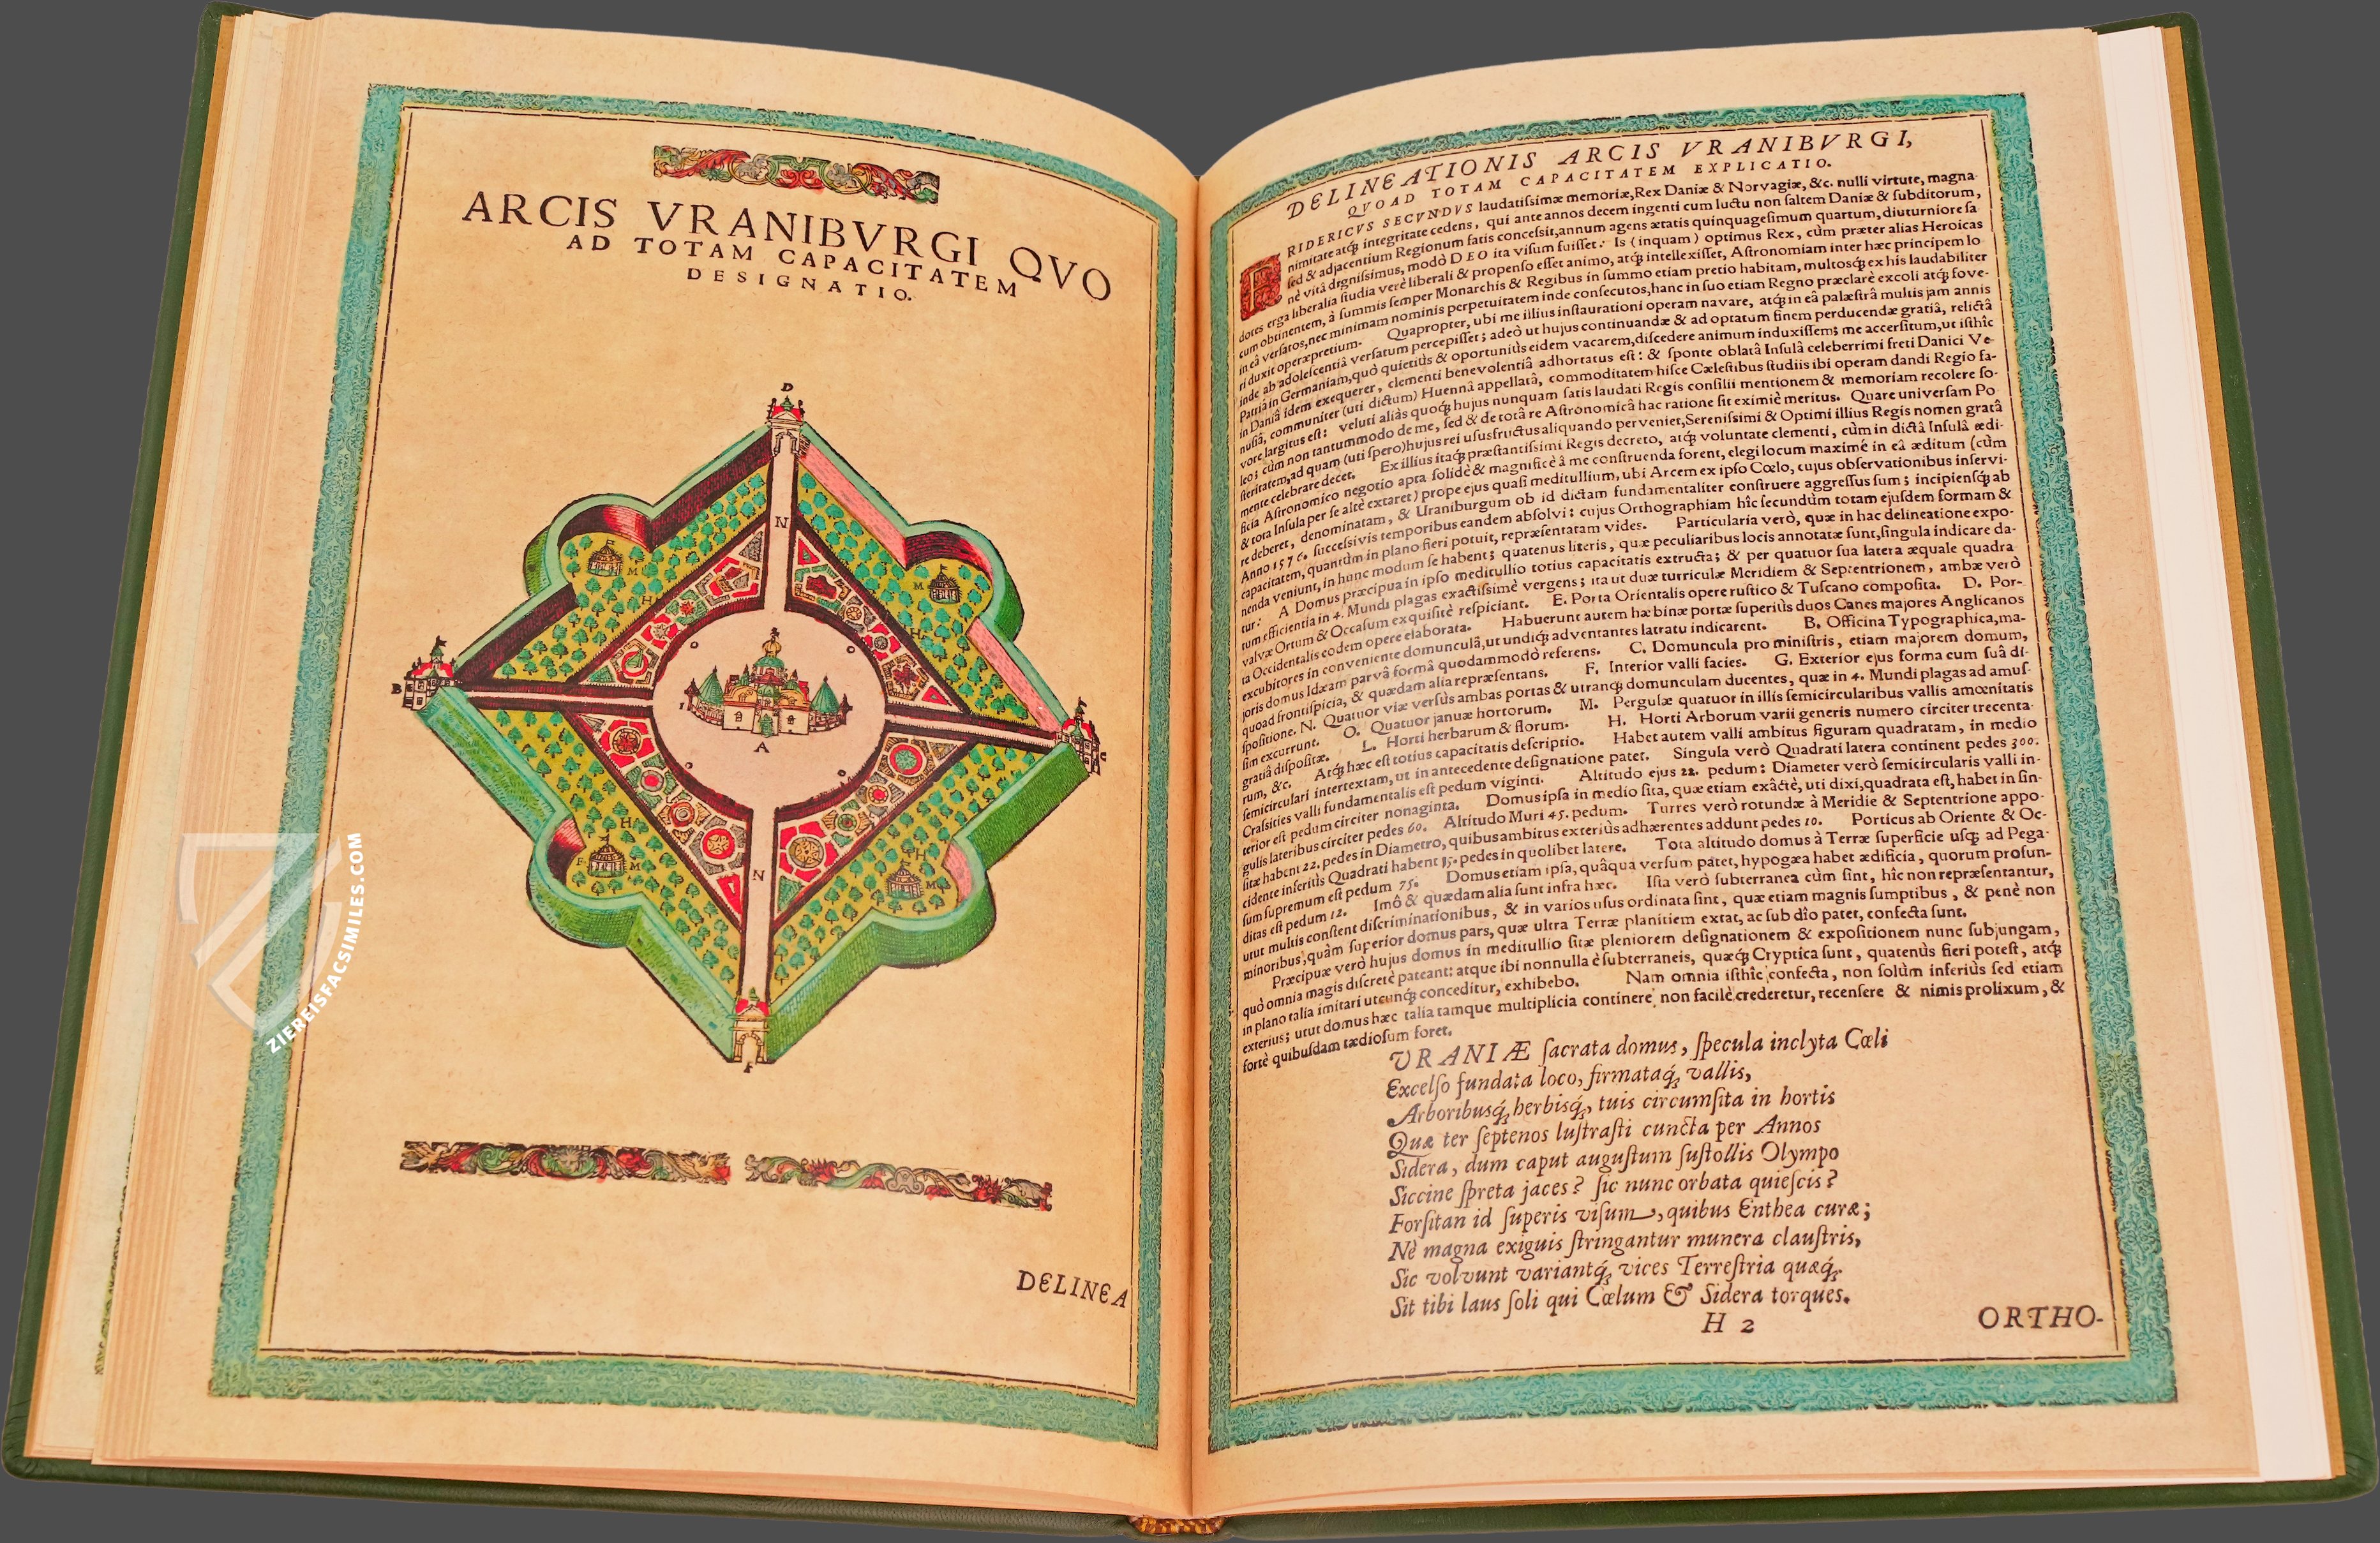 ARCIS VRANIBVRGI QVO
AD TOTAM CAPACITATEM
DESIGNATIO.
D
N
M
M
H
H
B
I
A
C
H
H
F
M
M
N
E
DELINEA
ZIEREISFACSIMILES.COM
DELINEATIONIS ARCIS VRANIBVRGI,
QVOAD TOTAM CAPACITATEM EXPLICATIO.
FRIDERICVS SECVNDVS laudatiſsimæ memoriæ, Rex Daniæ & Norvagiæ, &c. nulli virtute, magna-
nimitate atq́; integritate cedens, qui ante annos decem ingenti cum luctu non ſaltem Daniæ & ſubditorum,
ſed & adjacentium Regionum ſatis conceſsit, annum agens ætatis quinquageſimum quartum, diuturniore ſa-
nè vitâ digniſsimus, modò DEO ita viſum fuiſſet: Is (inquam) optimus Rex, cùm præter alias Heroicas
dotes erga liberalia ſtudia verè liberali & propenſo eſſet animo, atq́; intellexiſſet, Aſtronomiam inter hæc principem lo-
cum obtinentem, à ſummis ſemper Monarchis & Regibus in ſummo etiam pretio habitam, multosq́; ex his laudabiliter
in eâ verſatos, nec minimam nominis perpetuitatem inde conſecutos, hanc in ſuo etiam Regno præclarè excoli atq́; fove-
ri duxit operæpretium. Quapropter, ubi me illius inſtaurationi operam navare, atq́; in eâ palæſtrâ multis jam annis
inde ab adoleſcentiâ verſatum percepiſſet; adeò ut hujus continuandæ & ad optatum finem perducendæ gratiâ, relictâ
Patriâ in Germaniam, quò quietiùs & oportuniùs eidem vacarem, diſcedere animum induxiſſem; me accerſitum, ut iſthîc
in Daniâ idem exequerer, clementi benevolentiâ adhortatus eſt: & ſponte oblatâ Inſulâ celeberrimi freti Danici Ve-
nuſiâ, communiter (uti dictum) Huennâ appellatâ, commoditatem hiſce Cæleſtibus ſtudiis ibi operam dandi Regio fa-
vore largitus eſt: veluti aliàs quoq́; hujus nunquam ſatis laudati Regis conſilii mentionem & memoriam recolere ſo-
leo; cùm non tantummodo de me, ſed & de totâ re Aſtronomicâ hac ratione ſit eximiè meritus. Quare univerſam Po-
ſteritatem, ad quam (uti ſpero) hujus rei uſusfructus aliquando perveniet, Sereniſsimi & Optimi illius Regis nomen gratâ
mente celebrare decet. Ex illius itaq́; præſtantiſsimi Regis decreto, atq́; voluntate clementi, cùm in dictâ Inſulâ ædi-
ficia Aſtronomico negotio apta ſolidè & magnificè à me conſtruenda forent, elegi locum maximè in eâ æditum (cùm
& tota Inſula per ſe altè extaret) prope ejus quaſi meditullium, ubi Arcem ex ipſo Cœlo, cujus obſervationibus inſervi-
re deberet, denominatam, & Uraniburgum ob id dictam fundamentaliter conſtruere aggreſſus ſum; incipiensq́; ab
Anno 1576. ſucceſsivis temporibus eandem abſolvi: cujus Orthographiam hîc ſecundùm totam ejuſdem formam &
capacitatem, quantùm in plano fieri potuit, repræſentatam vides. Particularia verò, quæ in hac delineatione expo-
nenda veniunt, in hunc modum ſe habent; quatenus literis, quæ peculiaribus locis annotatæ ſunt, ſingula indicare da-
tur: A Domus præcipua in ipſo meditullio totius capacitatis extructa; & per quatuor ſua latera æquale quadra-
tum efficientia in 4. Mundi plagas exactiſsimè vergens; ita ut duæ turriculæ Meridiem & Septentrionem, ambæ verò
valvæ Ortum & Occaſum exquiſitè reſpiciant. E. Porta Orientalis opere ruſtico & Tuſcano compoſita. D. Por-
ta Occidentalis eodem opere elaborata. Habuerunt autem hæ binæ portæ ſuperiùs duos Canes majores Anglicanos
excubitores in conveniente domunculâ, ut undiq́; adventantes latratu indicarent. B. Officina Typographica, ma-
joris domus Idæam parvâ formâ quodammodò referens. C. Domuncula pro miniſtris, etiam majorem domum,
quoad frontiſpicia, & quædam alia repræſentans. F. Interior valli facies. G. Exterior ejus forma cum ſuâ di-
ſpoſitione. N. Quatuor viæ verſùs ambas portas & utramq́; domunculam ducentes, quæ in 4. Mundi plagas ad amuſ-
ſim excurrunt. O. Quatuor januæ hortorum. M. Pergulæ quatuor in illis ſemicircularibus vallis amœnitatis
gratiâ diſpoſitæ. L. Horti herbarum & florum. H. Horti Arborum varii generis numero circiter trecenta-
rum, &c. Atq́; hæc eſt totius capacitatis deſcriptio. Habet autem valli ambitus figuram quadratam, in medio
ſemicirculari intertextam, ut in antecedente deſignatione patet. Singula verò Quadrati latera continent pedes 300.
Craſsities valli fundamentalis eſt pedum viginti. Altitudo ejus 22. pedum: Diameter verò ſemicircularis valli in-
terior eſt pedum circiter nonaginta. Domus ipſa in medio ſita, quæ etiam exâctè, uti dixi, quadrata eſt, habet in ſin-
gulis lateribus circiter pedes 60. Altitudo Muri 45. pedum. Turres verò rotundæ à Meridie & Septentrione appo-
ſitæ habent 22. pedes in Diametro, quibus ambitus exteriùs adhærentes addunt pedes 10. Porticus ab Oriente & Oc-
cidente inferiùs Quadrati habent 15. pedes in quolibet latere. Tota altitudo domus à Terræ ſuperficie uſq́; ad Pega-
ſum ſupremum eſt pedum 75. Domus etiam ipſa, quâqua verſum patet, hypogæa habet ædificia, quorum profun-
ditas eſt pedum 12. Imò & quædam alia ſunt infra hæc. Iſta verò ſubterranea cùm ſint, hîc non repræſentantur,
utut multis conſtent diſcriminationibus, & in varios uſus ordinata ſint, quæ etiam magnis ſumptibus, & penè non
minoribus, quàm ſuperior domus pars, quæ ultra Terræ planitiem extat, ac ſub dîo patet, confecta ſunt.
Præcipuæ verò hujus domus in meditullio ſitæ pleniorem deſignationem & expoſitionem nunc ſubjungam,
quò omnia magis diſcretè pateant: atque ibi nonnulla è ſubterraneis, quæq́; Cryptica ſunt, quatenùs fieri poteſt, atq́;
in plano talia imitari utcunq́; conceditur, exhibebo. Nam omnia iſthîc confecta, non ſolùm inferiùs ſed etiam
exterius; utut domus hæc talia tamque multiplicia continere non facilè crederetur, recenſere & nimis prolixum, &
fortè quibuſdam tædioſum foret.
URANIÆ ſacrata domus, ſpecula inclyta Cœli
Excelſo fundata loco, firmataq́; vallis,
Arboribusq́; herbisq́;, tuis circumſita in hortis
Quæ ter ſeptenos luſtraſti cuncta per Annos
Sidera, dum caput auguſtum ſuſtollis Olympo
Siccine ſpreta jaces? ſic nunc orbata quieſcis?
Forſitan id ſuperis viſum, quibus Enthea curæ;
Nè magna exiguis ſtringantur munera clauſtris,
Sic volvunt variantq́; vices Terreſtria quæq́;.
Sit tibi laus ſoli qui Cœlum & Sidera torques.
H 2
ORTHO-